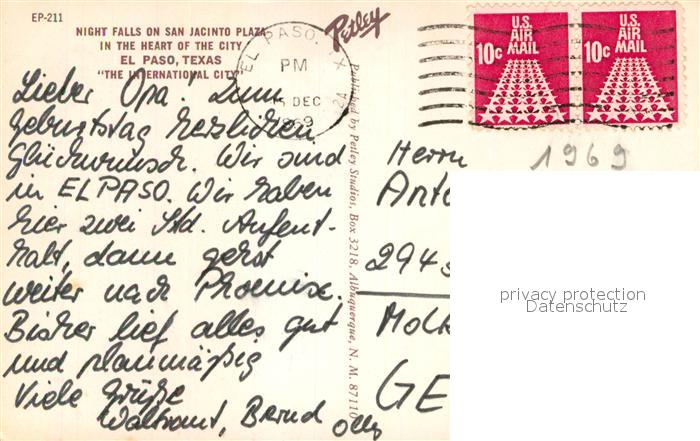 EP-211
NIGHT FALLS ON SAN JACINTO PLAZA
IN THE HEART OF THE CITY
EL PASO, TEXAS
"THE INTERNATIONAL CITY"
Petley
EL PASO, TX
PM
DEC
1969
U.S. AIR MAIL 10c
U.S. AIR MAIL 10c
Lieber Opa! Zum
Geburtstag herzlichen
Glückwunsch. Wir sind
in EL PASO. Wir haben
hier zwei Std. Aufent-
halt, dann gehts
weiter nach Phoenix.
Bisher lief alles gut
und planmäßig
Viele Grüße
Waltraut, Bernd
Published by Petley Studios, Box 3218, Albuquerque, N. M. 87110
1969
Herrn
Anto
294
Molk
GE
privacy protection
Datenschutz